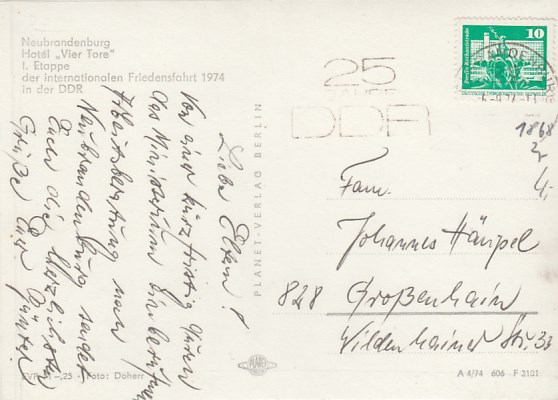 Neubrandenburg
Hotel „Vier Tore"
I. Etappe
der internationalen Friedensfahrt 1974
in der DDR
25
DDR
10
1868
4,-
Liebe Eltern!
Von einer kurzfristig durch
das Ministerium einberufenen
Arbeitsberatung nach
Neubrandenburg sendet
Euch die herzlichsten
Grüße Euer Günter
PLANET-VERLAG BERLIN
Fam.
Johannes Hänpel
828 Großenhain
Wildenhainer Str. 33
EVP M -,25 · Foto: Doherr
PLANET
A 4/74 606 F 3101